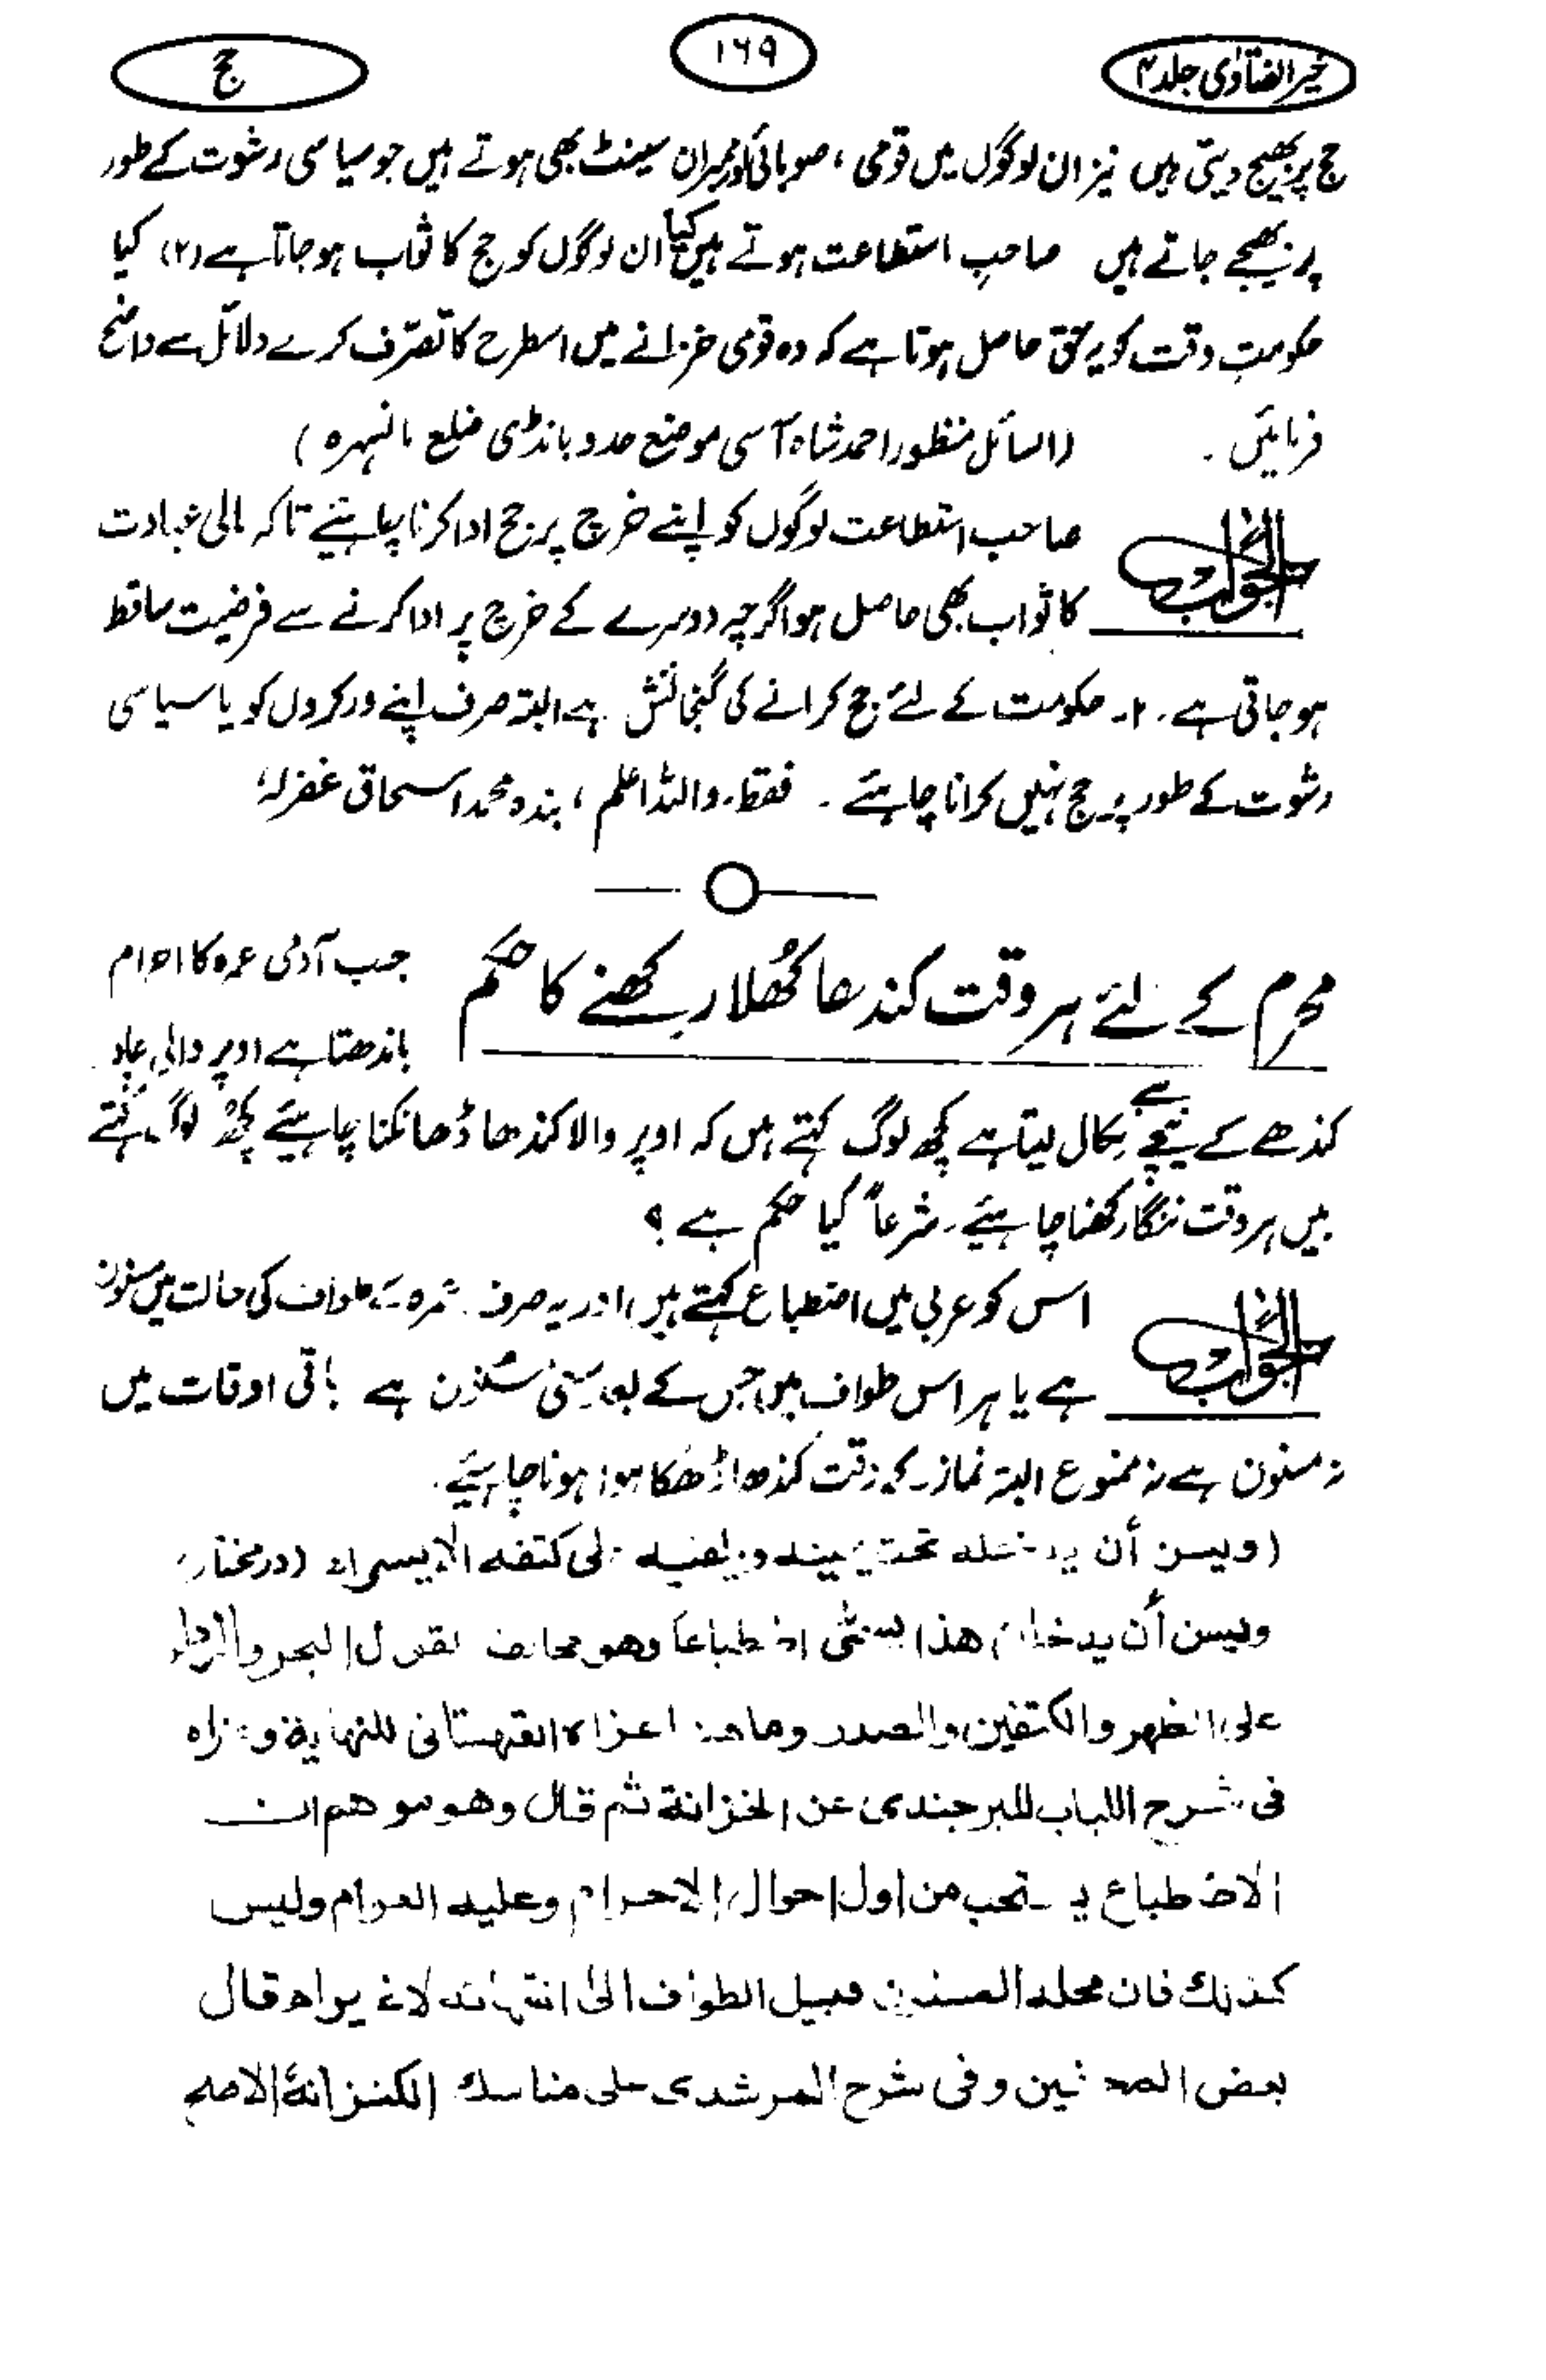 خیر الفتاوٰی جلد ۴
۱۶۹
حج
حج پر بھیج دیتی ہیں نیز ان لوگوں میں قومی ، صوبائی اور ممبران سینٹ بھی ہوتے ہیں جو سیاسی رشوت کے طور
پر بھیجے جاتے ہیں صاحبِ استطاعت ہوتے ہیں کیا ان لوگوں کو حج کا ثواب ہو جاتا ہے (۲) کیا
حکومتِ وقت کو یہ حق حاصل ہوتا ہے کہ وہ قومی خزانے میں اسطرح کا تصرّف کرے دلائل سے واضح
فرمائیں ۔ (السائل منظور احمد شاہ آسی موضع حدو بانڈی ضلع مانسہرہ)
الجواب
صاحب استطاعت لوگوں کو اپنے خرچ پر حج ادا کرنا چاہئیے تاکہ مالی عبادت
کا ثواب بھی حاصل ہو اگرچہ دوسرے کے خرچ پر ادا کرنے سے فرضیت ساقط
ہو جاتی ہے ۔ ۲۔ حکومت کے لئے حج کرانے کی گنجائش ہے البتہ صرف اپنے ورکروں کو یا سیاسی
رشوت کے طور پر حج نہیں کرانا چاہئے ۔ فقط، واللہ اعلم ، بندہ محمد اسحاق غفرلہ،
محرم کے لئے ہر وقت کندھا کھُلا رکھنے کا حکم
جب آدمی عمرہ کا احرام
باندھتا ہے اوپر والی چادر
کندھے کے نیچے سے نکال لیتا ہے کچھ لوگ کہتے ہیں کہ اوپر والا کندھا ڈھانکنا چاہیئے کچھ لوگ کہتے
ہیں ہر وقت ننگا رکھنا چاہیئے ۔ شرعاً کیا حکم ہے ؟
الجواب
اس کو عربی میں اضطباع کہتے ہیں اور یہ صرف عمرہ کے طواف کی حالت میں مسنون
ہے یا ہر اس طواف میں جس کے بعد سعی مسنون ہے باقی اوقات میں
نہ مسنون ہے نہ ممنوع البتہ نماز کے وقت کندھا ڈھکا ہوا ہونا چاہیئے۔
(ویسن أن یدخله تحت یمینه ویلقیه علی کتفه الایسر اه (درمختار)
ویسن أن یدخله هذا یسمّٰی اضطباعاً وهو مخالف لقول البحر والرداء
علی الظهر والکتفین والصدر وما هنا عزاه القهستانی للنهایة وعزاه
فی شرح اللباب للبرجندی عن الخزانة ثم قال وهو موهم ان
الاضطباع یستحب من اول احوال الاحرام وعلیه العوام ولیس
کذلك فان محله المسنون قبیل الطواف الٰی انتهائه لا غیر اه قال
بعض المحشین وفی شرح المرشدی علی مناسك الکنز انهٔ الاصح